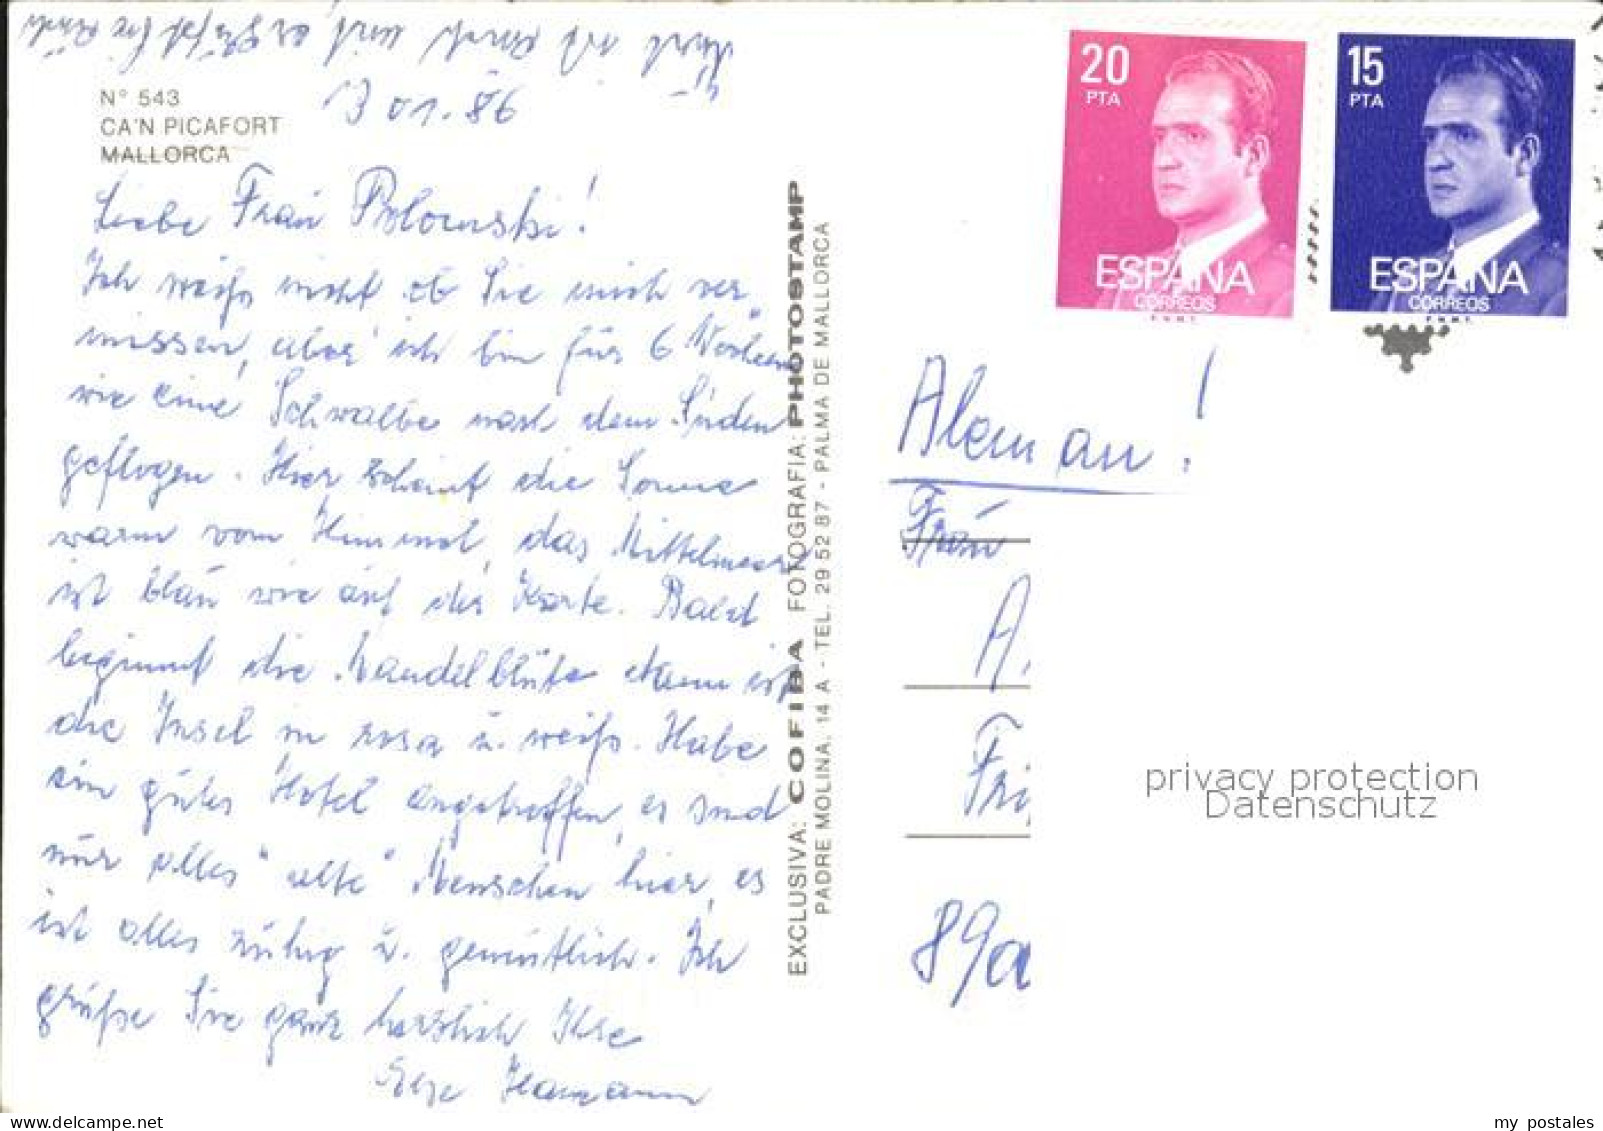 Nº 543
CA'N PICAFORT
MALLORCA
13 01. 86
Liebe Frau Polowski!
Ich weiß nicht ob Sie mich ver
missen, aber ich bin für 6 Wochen
wie eine Schwalbe nach dem Süden
geflogen. Hier scheint die Sonne
warm vom Himmel, das Mittelmeer
ist blau wie auf der Karte. Bald
beginnt die Mandelblüte dann ist
die Insel in rosa u. weiß. Habe
ein gutes Hotel angetroffen, es sind
nur alles "alte" Menschen hier, es
ist alles ruhig u. gemütlich. Ich
grüße Sie ganz herzlich Ihre
Else
EXCLUSIVA: COFIBA FOTOGRAFIA: PHOTOSTAMP
PADRE MOLINA, 14 A - TEL. 29 52 87 - PALMA DE MALLORCA
20
PTA
ESPAÑA
CORREOS
F.N.M.T.
15
PTA
ESPAÑA
CORREOS
F.N.M.T.
Aleman!
Frau
A.
Fri
89a
privacy protection
Datenschutz
my postales